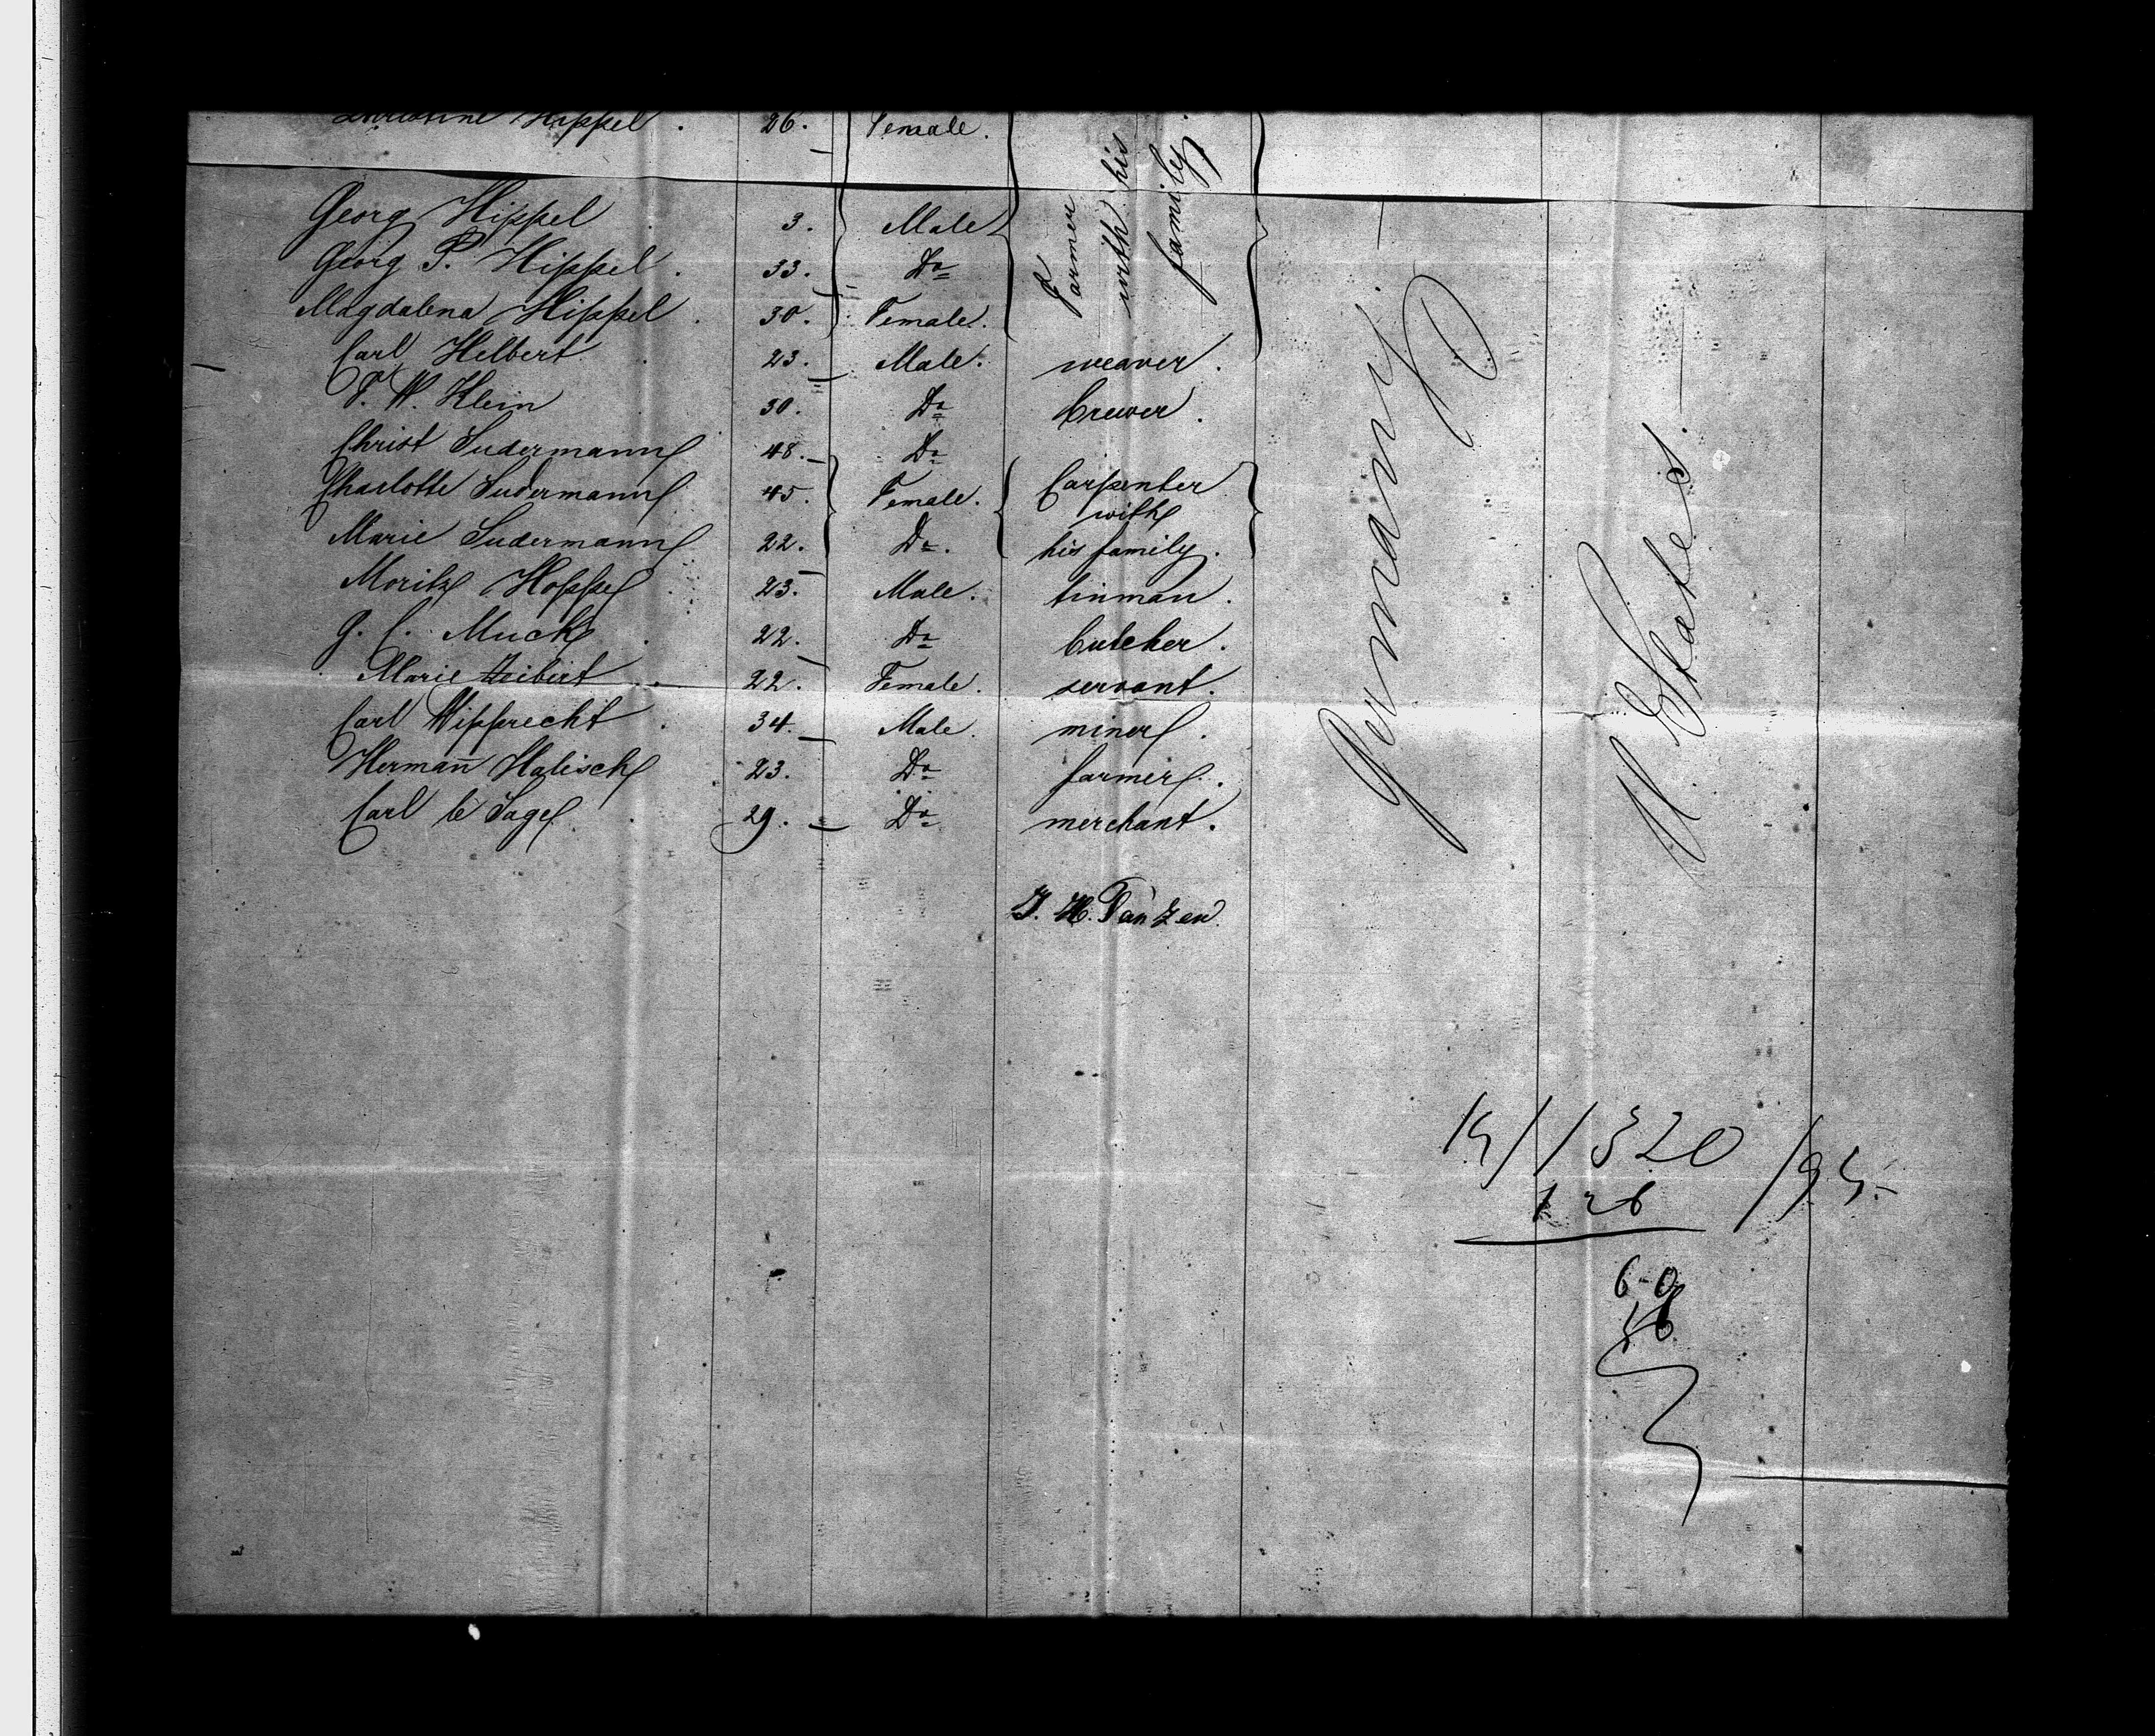 Christine Hippel . 26. Female.
Georg Hippel . 3. Male
Georg P. Hippel . 33. Do
Magdalena Hippel . 30. Female.
Farmer
with his
family.
Carl Helbert . 23. Male. weaver.
P. W. Klein 30. Do brewer.
Christ Sudermann 48. Do
Charlotte Sudermann 45. Female. Carpenter
with
Marie Sudermann 22. Do. his family.
Moritz Hoppe . 23. Male. tinman.
G. C. Muck . 22. Do butcher.
Marie Heibert . 22. Female. servant.
Carl Wipprecht . 34. Male. miner.
Hermañ Halisch . 23. Do farmer.
Carl le Sage . 29. Do merchant.
Germany.
U. States.
J. H. Tanzen.
14/1320/94.
126
60
56